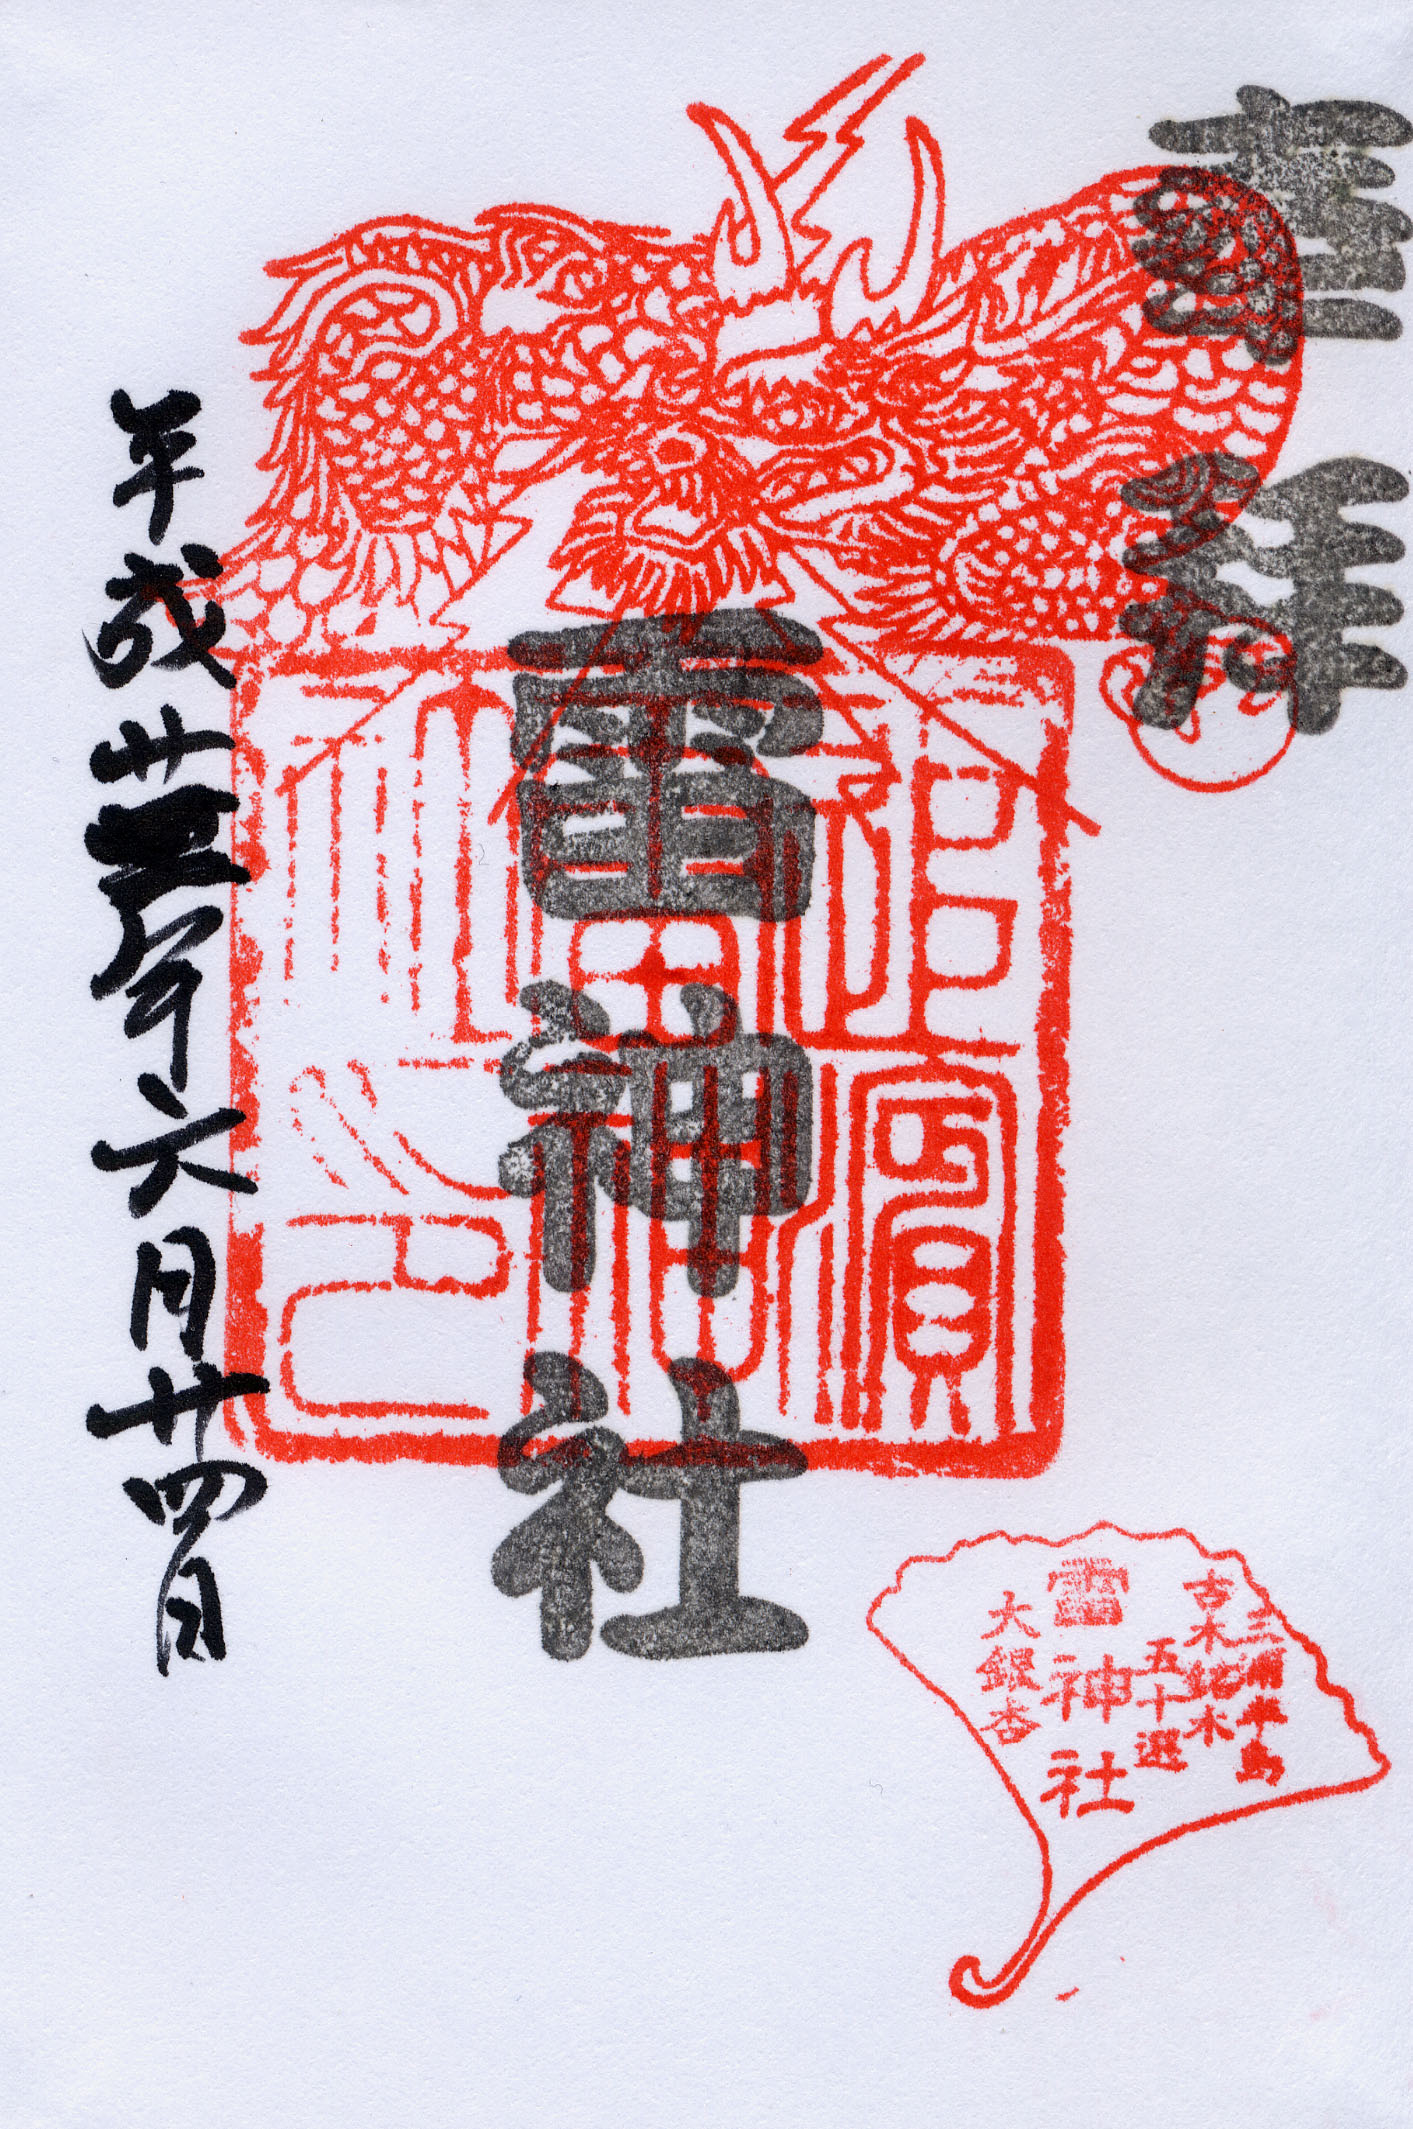 奉拝
雷神社
平成廿五年六月廿四日
追濱
雷神
社印
三浦半島
古木銘木
五十選
雷神社
大銀杏